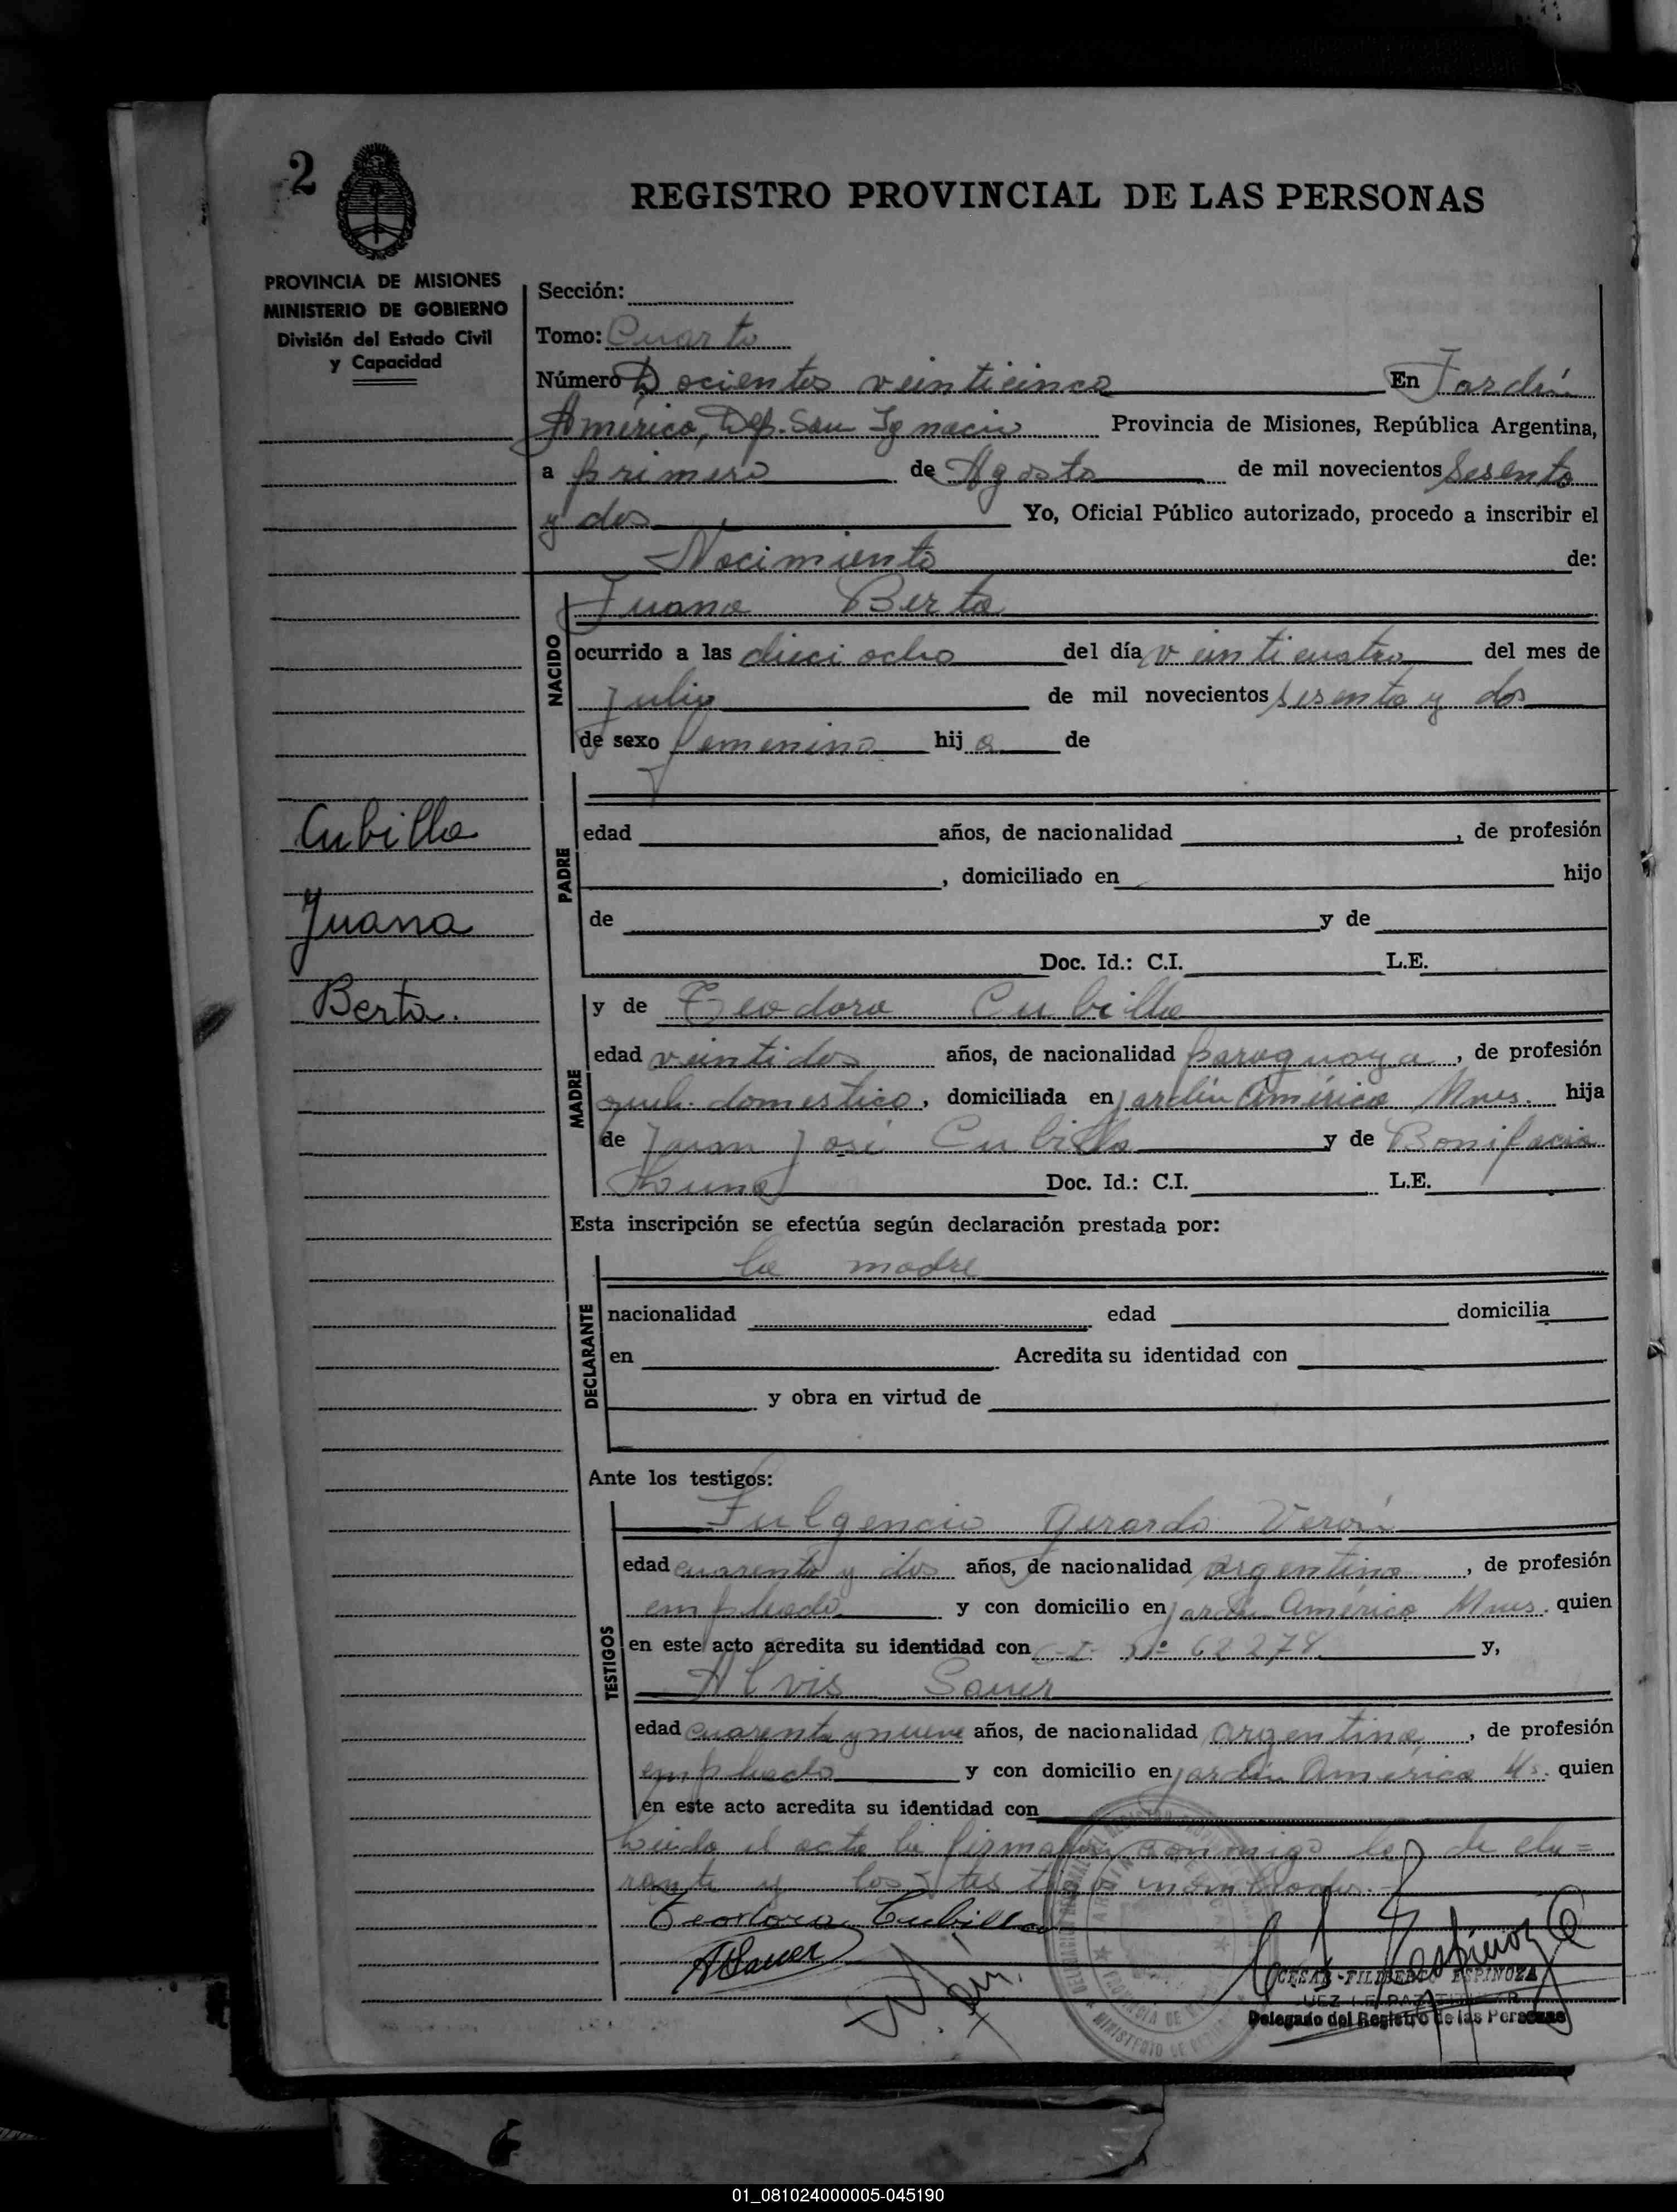 2
REGISTRO PROVINCIAL DE LAS PERSONAS
PROVINCIA DE MISIONES
MINISTERIO DE GOBIERNO
División del Estado Civil
y Capacidad
Sección:
Tomo: Cuarto
Número Docientos veinticinco En Jardín
América, Dep. San Ignacio Provincia de Misiones, República Argentina,
a primero de Agosto de mil novecientos sesenta
y dos Yo, Oficial Público autorizado, procedo a inscribir el
Nacimiento de:
NACIDO
Juana Berta
ocurrido a las dieci ocho del día veinticuatro del mes de
Julio de mil novecientos sesenta y dos
de sexo femenino hija de
Cubilla
Juana
Berta.
PADRE
edad años, de nacionalidad , de profesión
, domiciliado en hijo
de y de
Doc. Id.: C.I. L.E.
MADRE
y de Teodora Cubilla
edad veintidos años, de nacionalidad paraguaya, de profesión
queh. domestico, domiciliada en jardín América Mnes. hija
de Juan José Cubilla y de Bonifacia
Luna Doc. Id.: C.I. L.E.
Esta inscripción se efectúa según declaración prestada por:
DECLARANTE
la madre
nacionalidad edad domicilia
en Acredita su identidad con
y obra en virtud de
Ante los testigos:
TESTIGOS
Fulgencio Gerardo Verón
edad cuarenta y dos años, de nacionalidad argentino, de profesión
empleado y con domicilio en jardín América Mnes. quien
en este acto acredita su identidad con C.I. Nº 62278 y,
Alvis Sauer
edad cuarenta y nueve años, de nacionalidad argentina, de profesión
empleado y con domicilio en jardín América Ms. quien
en este acto acredita su identidad con
Leida el acta la firman conmigo la de cla=
rante y los testigos nombrados.-
Teodora Cubilla
ASauer
CESAR FILIBERTO ESPINOZA
JUEZ DE PAZ TITULAR
Delegado del Registro de las Personas
01_081024000005-045190